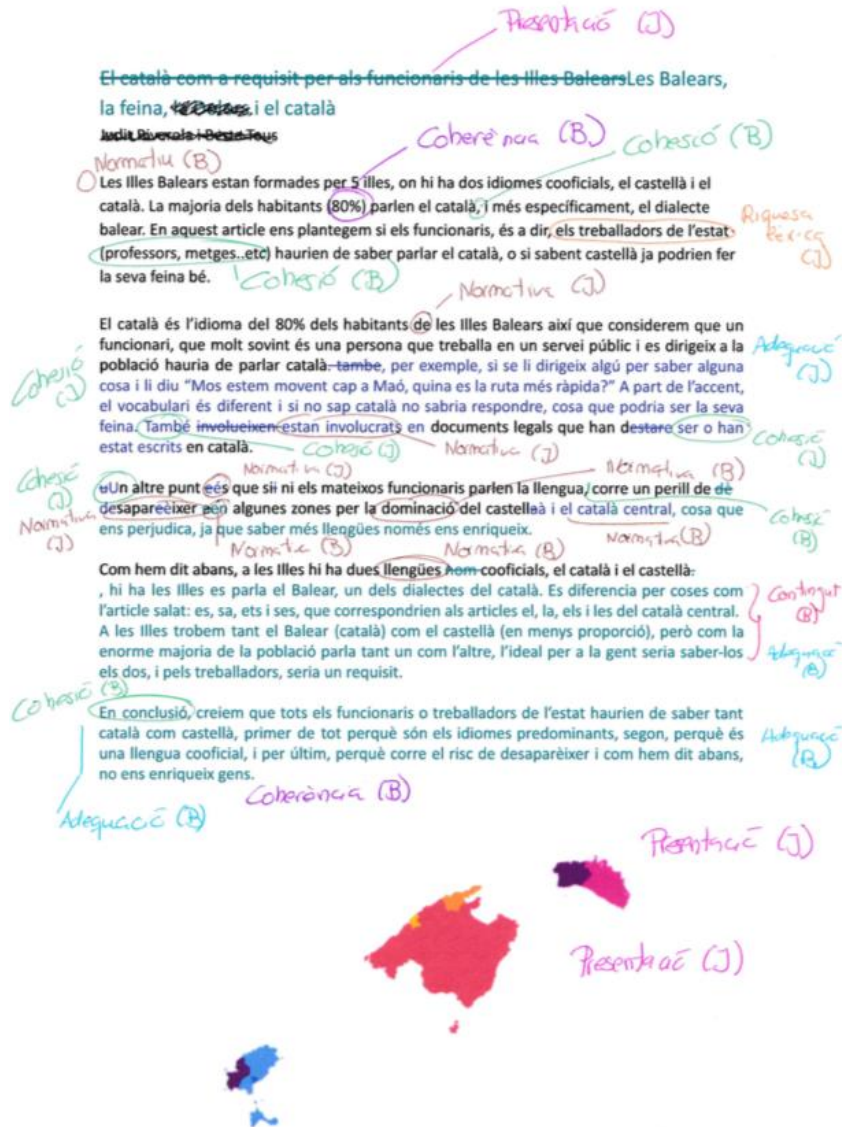 Presentació (J)
El català com a requisit per als funcionaris de les Illes BalearsLes Balears,
la feina, i el català
Judit Riverola i Beste Tous
Coherència (B)
Cohesió (B)
Normatiu (B)
Les Illes Balears estan formades per 5 illes, on hi ha dos idiomes cooficials, el castellà i el
català. La majoria dels habitants (80%) parlen el català, i més específicament, el dialecte
balear. En aquest article ens plantegem si els funcionaris, és a dir, els treballadors de l'estat
Riquesa lèxica (J)
(professors, metges..etc) haurien de saber parlar el català, o si sabent castellà ja podrien fer
la seva feina bé.
Cohesió (B)
Normativa (J)
El català és l'idioma del 80% dels habitants de les Illes Balears així que considerem que un
funcionari, que molt sovint és una persona que treballa en un servei públic i es dirigeix a la
Adequació (J)
població hauria de parlar català. tambe, per exemple, si se li dirigeix algú per saber alguna
Cohesió (J)
cosa i li diu "Mos estem movent cap a Maó, quina es la ruta més ràpida?" A part de l'accent,
el vocabulari és diferent i si no sap català no sabria respondre, cosa que podria ser la seva
feina. També involueixen estan involucrats en documents legals que han destare ser o han
Cohesió (J)
estat escrits en català.
Cohesió (J)
Normativa (J)
Cohesió (J)
Normativa (J)
Normativa (B)
uUn altre punt eés que sii ni els mateixos funcionaris parlen la llengua, corre un perill de dè
Normativa (J)
desapareèixer aen algunes zones per la dominació del castellaà i el català central, cosa que
Cohesió (B)
ens perjudica, ja que saber més llengües només ens enriqueix.
Normativa (B)
Normativa (B)
Normativa (B)
Com hem dit abans, a les Illes hi ha dues llengües hom cooficials, el català i el castellà.
, hi ha les Illes es parla el Balear, un dels dialectes del català. Es diferencia per coses com
Contingut (B)
l'article salat: es, sa, ets i ses, que correspondrien als articles el, la, els i les del català central.
A les Illes trobem tant el Balear (català) com el castellà (en menys proporció), però com la
enorme majoria de la població parla tant un com l'altre, l'ideal per a la gent seria saber-los
Adequació (B)
els dos, i pels treballadors, seria un requisit.
Cohesió (B)
En conclusió, creiem que tots els funcionaris o treballadors de l'estat haurien de saber tant
català com castellà, primer de tot perquè són els idiomes predominants, segon, perquè és
Adequació (B)
una llengua cooficial, i per últim, perquè corre el risc de desaparèixer i com hem dit abans,
no ens enriqueix gens.
Coherància (B)
Adequació (B)
Presentació (J)
Presentació (J)